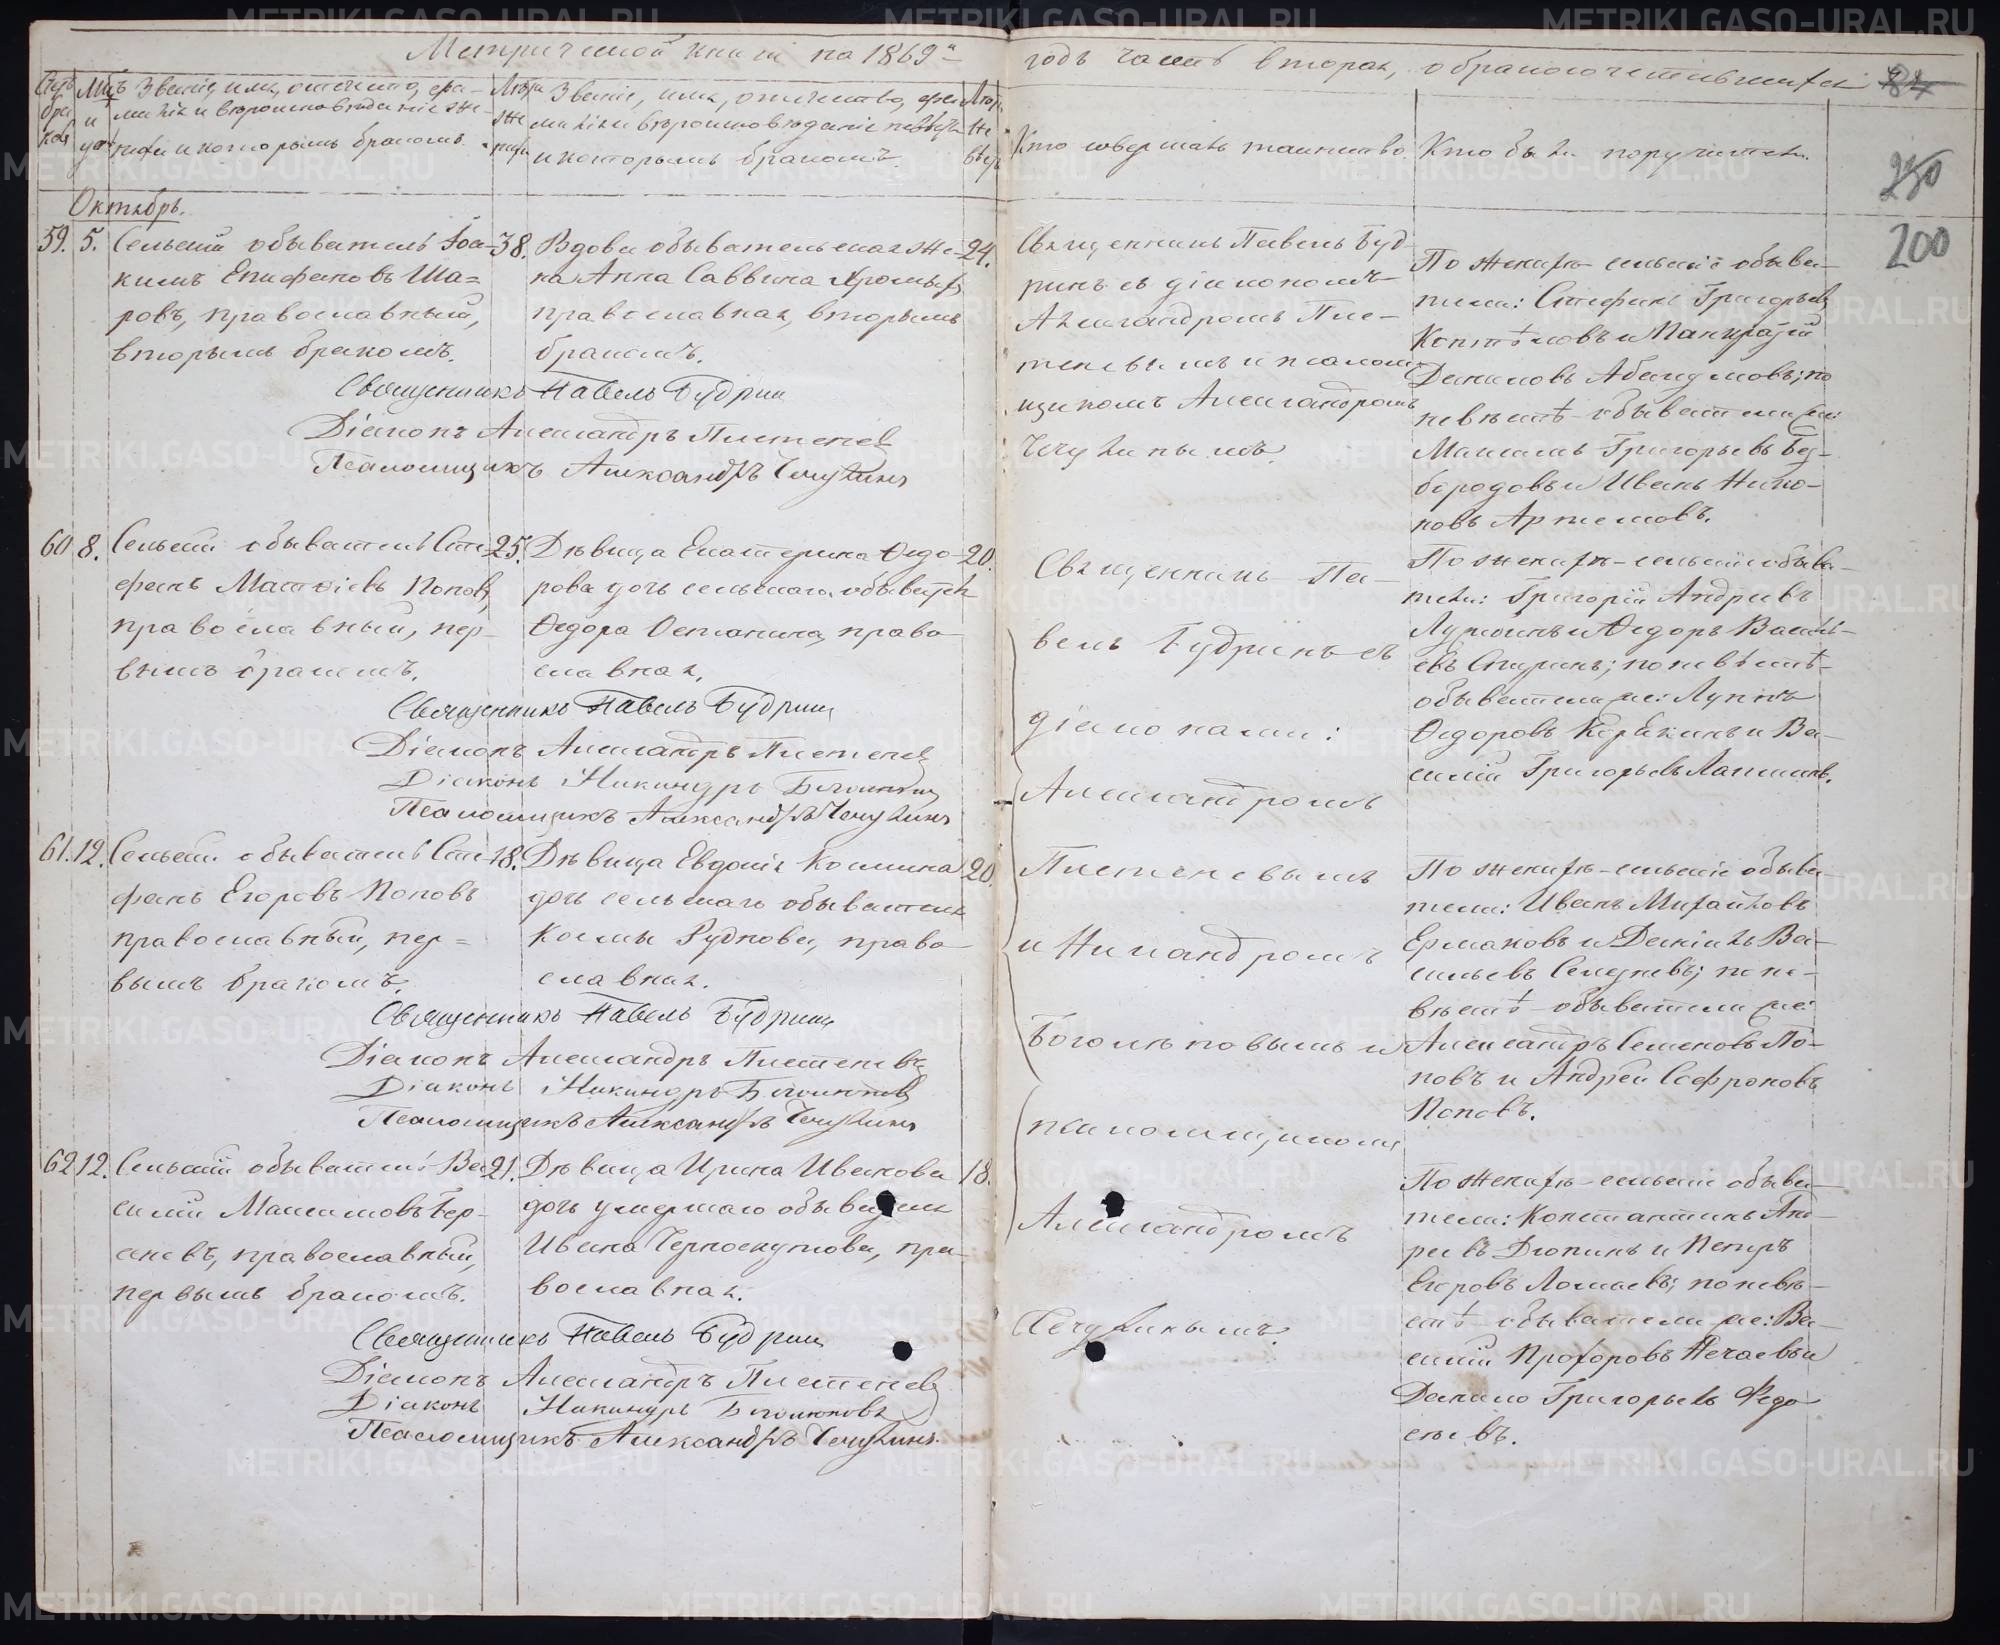 Метрической книги на 1869й
годъ часть вторая, о бракосочетавшихся
84
250
200
Счетъ браковъ
Мцъ и день
Званіе, имя, отчество, фа-
милія и вѣроисповѣданіе же-
ниха и которымъ бракомъ.
Лѣта жениха
Званіе, имя, отчество, фа-
милія и вѣроисповѣданіе невѣсты
и которымъ бракомъ.
Кто совершалъ таинство.
Кто были поручители.
Октябрь.
59. 5. Сельскій обыватель Іоа-
кимъ Епифановъ Ша=
ровъ, православный,
вторымъ бракомъ.
38.
Вдова обывательская же-
на Анна Саввина Хромыхъ
православная, вторымъ
бракомъ.
24.
Священникъ Павелъ Буд-
ринъ съ діакономъ
Александромъ Пле-
теневымъ и псалом-
щикомъ Александромъ
Чечулинымъ.
По женихѣ сельскіе обыва-
тели: Стефанъ Григорьевъ
Коптѣловъ и Панкратій
Даниловъ Абакумовъ; по
невѣстѣ - обыватели же:
Максимъ Григорьевъ Без-
бородовъ и Иванъ Нико-
новъ Артемовъ.
Священникъ Павелъ Будрин
Діаконъ Александръ Плетенев
Псаломщикъ Александръ Чечулинъ
60 8. Сельскій обыватель Сте-
фанъ Матвіевъ Поповъ,
православный, пер-
вымъ бракомъ.
25.
Дѣвица Екатерина Ѳедо-
рова дочь сельскаго обывателя
Ѳедора Останина, право-
славная.
20.
По женихѣ - сельскіе обыва-
тели: Григорій Андреевъ
и Ѳедоръ Василь-
евъ Спиринъ; по невѣстѣ -
обыватели же:
Ѳедоровъ Корякинъ и Ва-
силій Григорьевъ Лапшинъ.
Священникъ Павелъ Будрин
Діаконъ Александръ Плетенев
Діаконъ Никандръ Боголѣповъ
Псаломщикъ Александръ Чечулинъ
Священникъ Па-
велъ Будринъ съ
діаконами:
Александромъ
Плетеневымъ
и Никандромъ
Боголѣповымъ и
псаломщикомъ
Александромъ
Чечулинымъ.
61. 12. Сельскій обыватель Сте-
фанъ Егоровъ Поповъ
православный, пер=
вымъ бракомъ.
18.
Дѣвица Евдокія Космина
дочь сельскаго обывателя
Космы Рудкова, право-
славная.
20.
По женихѣ - сельскіе обыва-
тели: Иванъ Михайловъ
Ермаковъ и Даніилъ Ва-
сильевъ; по не-
вѣстѣ - обыватели же:
Александръ Семеновъ По-
повъ и Андрей Софроновъ
Поповъ.
Священникъ Павелъ Будрин
Діаконъ Александръ Плетеневъ
Діаконъ Никандръ Боголѣповъ
Псаломщикъ Александръ Чечулинъ
62 12. Сельскій обыватель Ва-
силій Максимовъ Бер-
сневъ, православный,
первымъ бракомъ.
21.
Дѣвица Ирина Иванова
дочь умершаго обывателя
Ивана Черноскутова, пра-
вославная.
18.
По женихѣ - сельскіе обыва-
тели: Константинъ Анд-
реевъ Дюпинъ и Петръ
Егоровъ Ломаевъ; по невѣ-
стѣ - обыватели же: Ва-
силій Прохоровъ Нечаевъ и
Данило Григорьевъ Федо-
сѣевъ.
Священникъ Павелъ Будрин
Діаконъ Александръ Плетенев
Діаконъ Никандръ Боголѣповъ
Псаломщикъ Александръ Чечулинъ.
METRIKI.GASO-URAL.RU